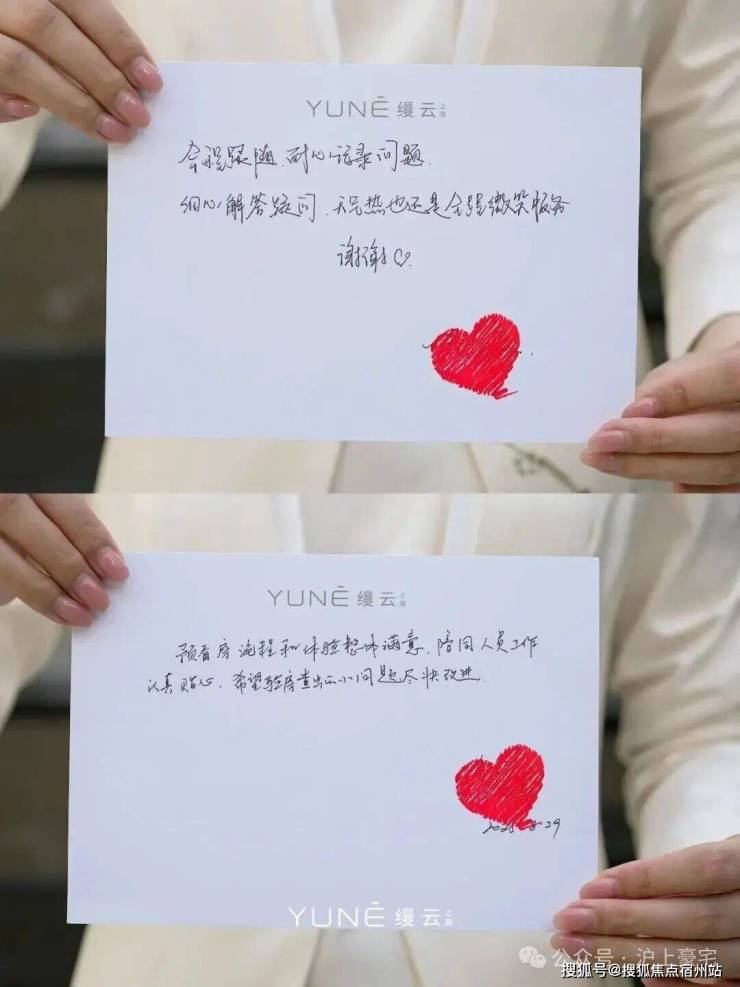 YUNĒ 缦云 上海
全程跟随、耐心记录问题.
细心解答疑问、天气热也还是全程微笑服务
谢谢♡.
YUNĒ 缦云 上海
预看房流程和体验整体满意、陪同人员工作
认真贴心、希望验房查出的小问题尽快改进.
8-29
YUNĒ 缦云 上海
公众号·沪上豪宅
搜狐号@搜狐焦点宿州站